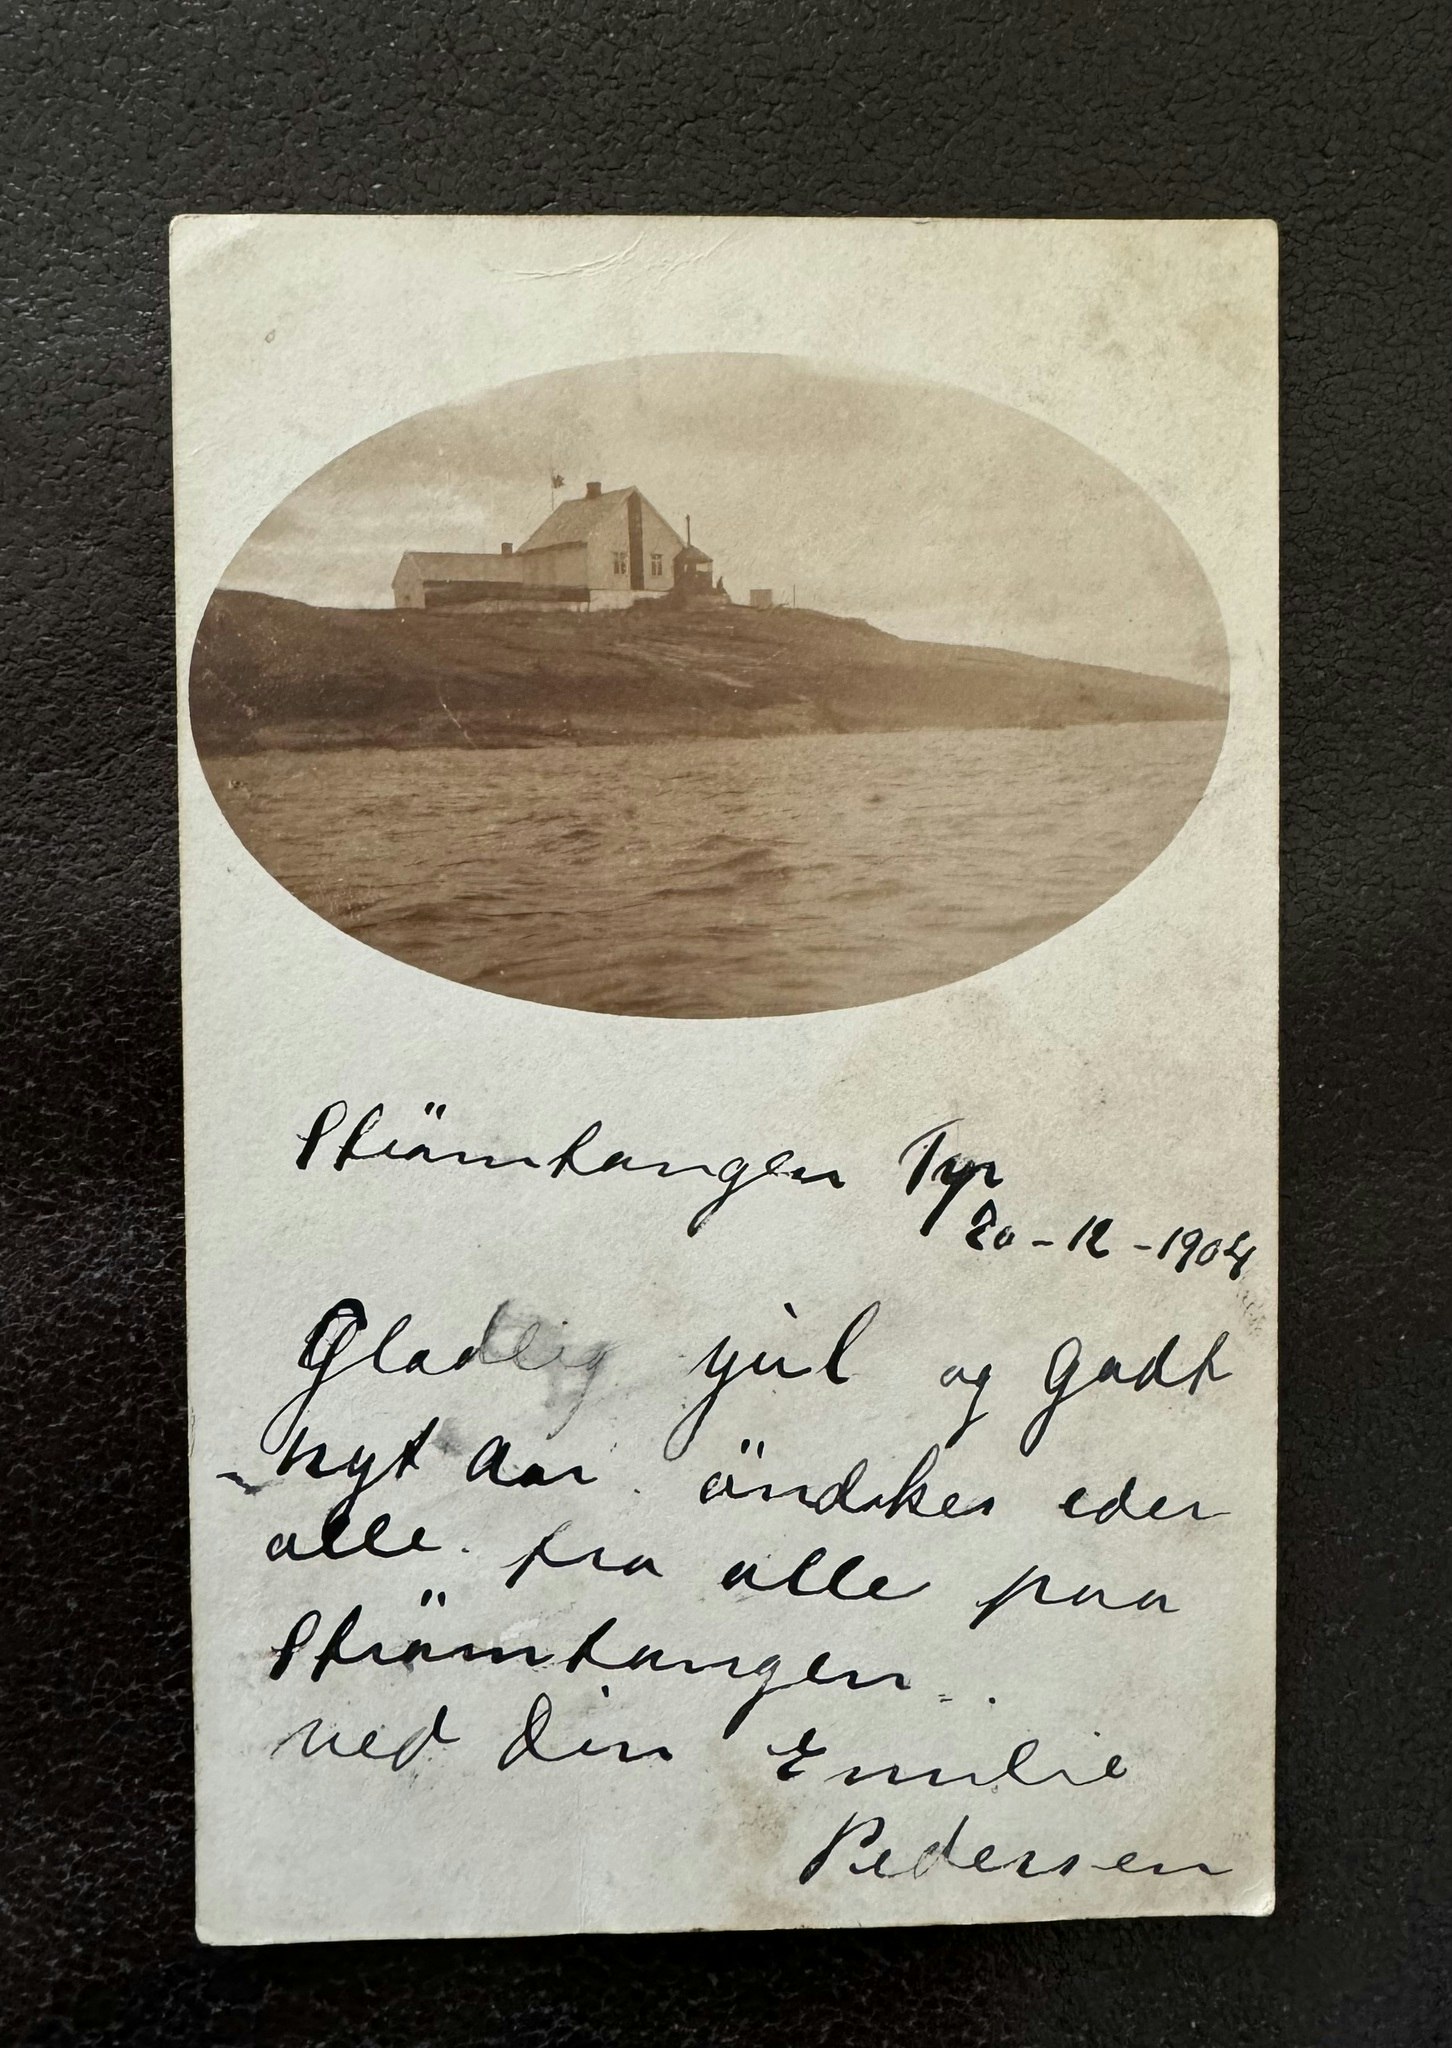 Strömtangen Fyr
20-12-1904
Gladlig jul og Godt
nyt Aar öndskes eder
alle. fra alle paa
Strömtangen
ved Din Emilie
Pedersen